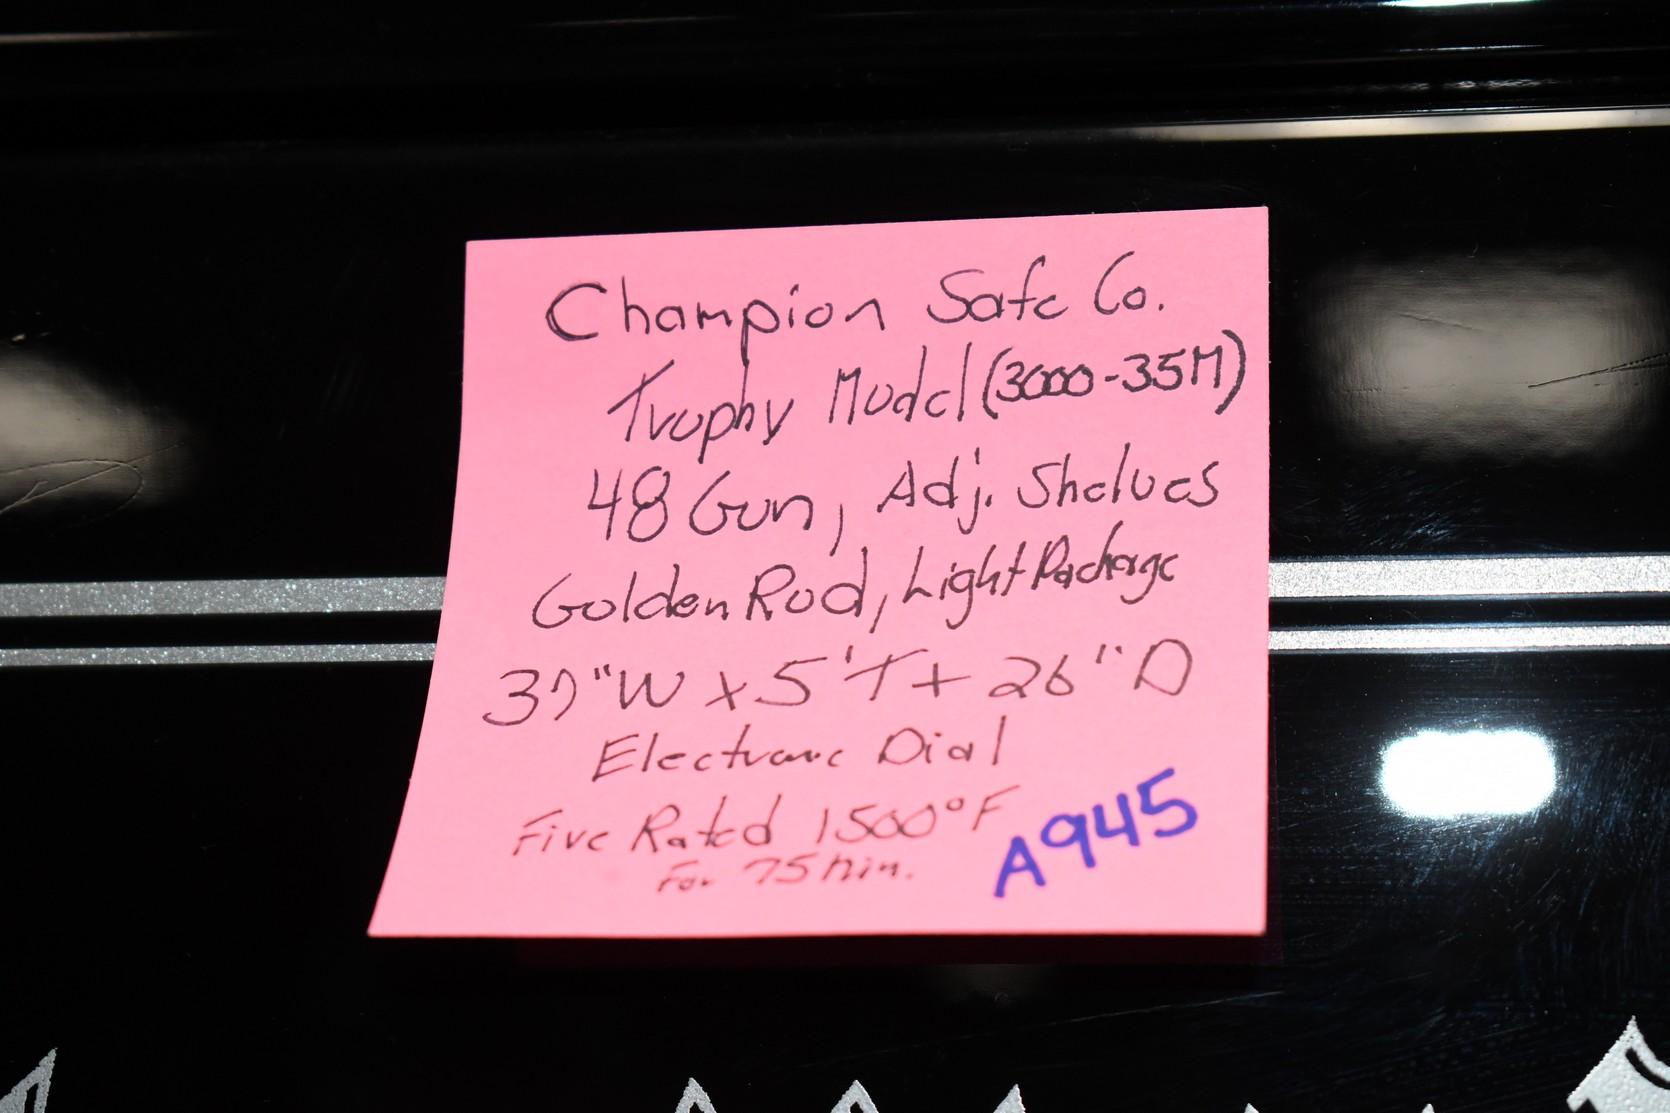 Champion Safe Co.
Trophy Model (3000-35M)
48 Gun, Adj. Shelves
Golden Rod, Light Package
37"W x 5'T + 26"D
Electronic Dial
Five Rated 1500°F
For 75 Min.
A945